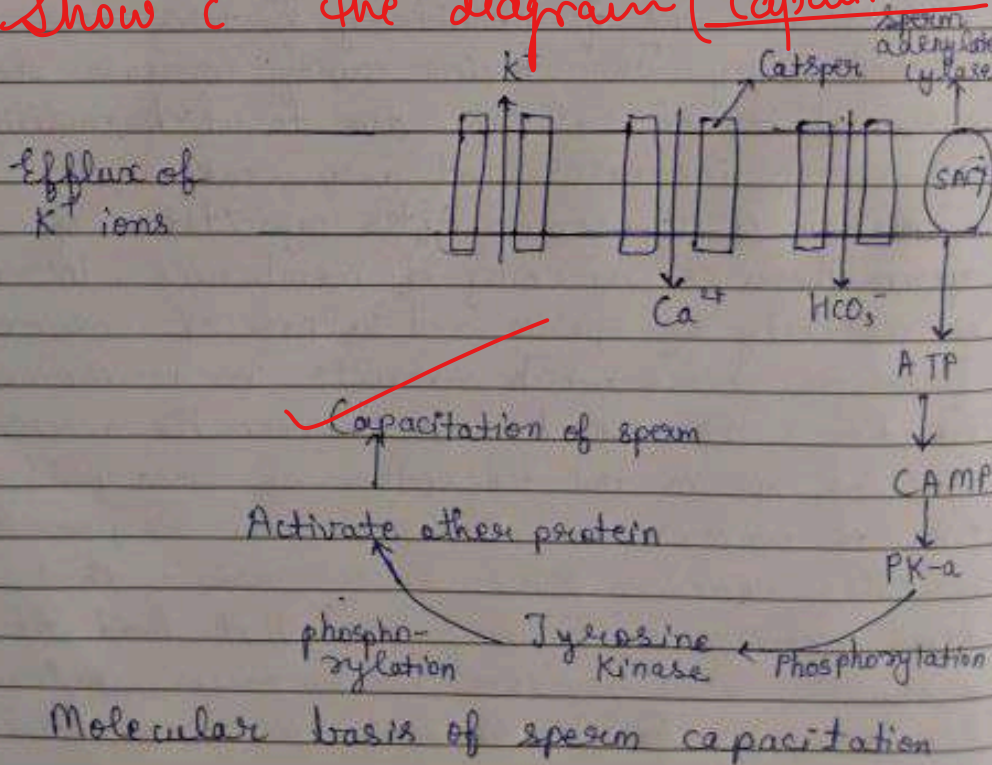 Show c the diagram (
K+
Catsper
sperm
adenylate
cylase
Efflux of
K+ ions
SACY
Ca2+
HCO3-
ATP
CAMP
PK-a
Phosphorylation
Tyrosine
Kinase
phospho-
rylation
Activate other protein
Capacitation of sperm
Molecular basis of sperm capacitation